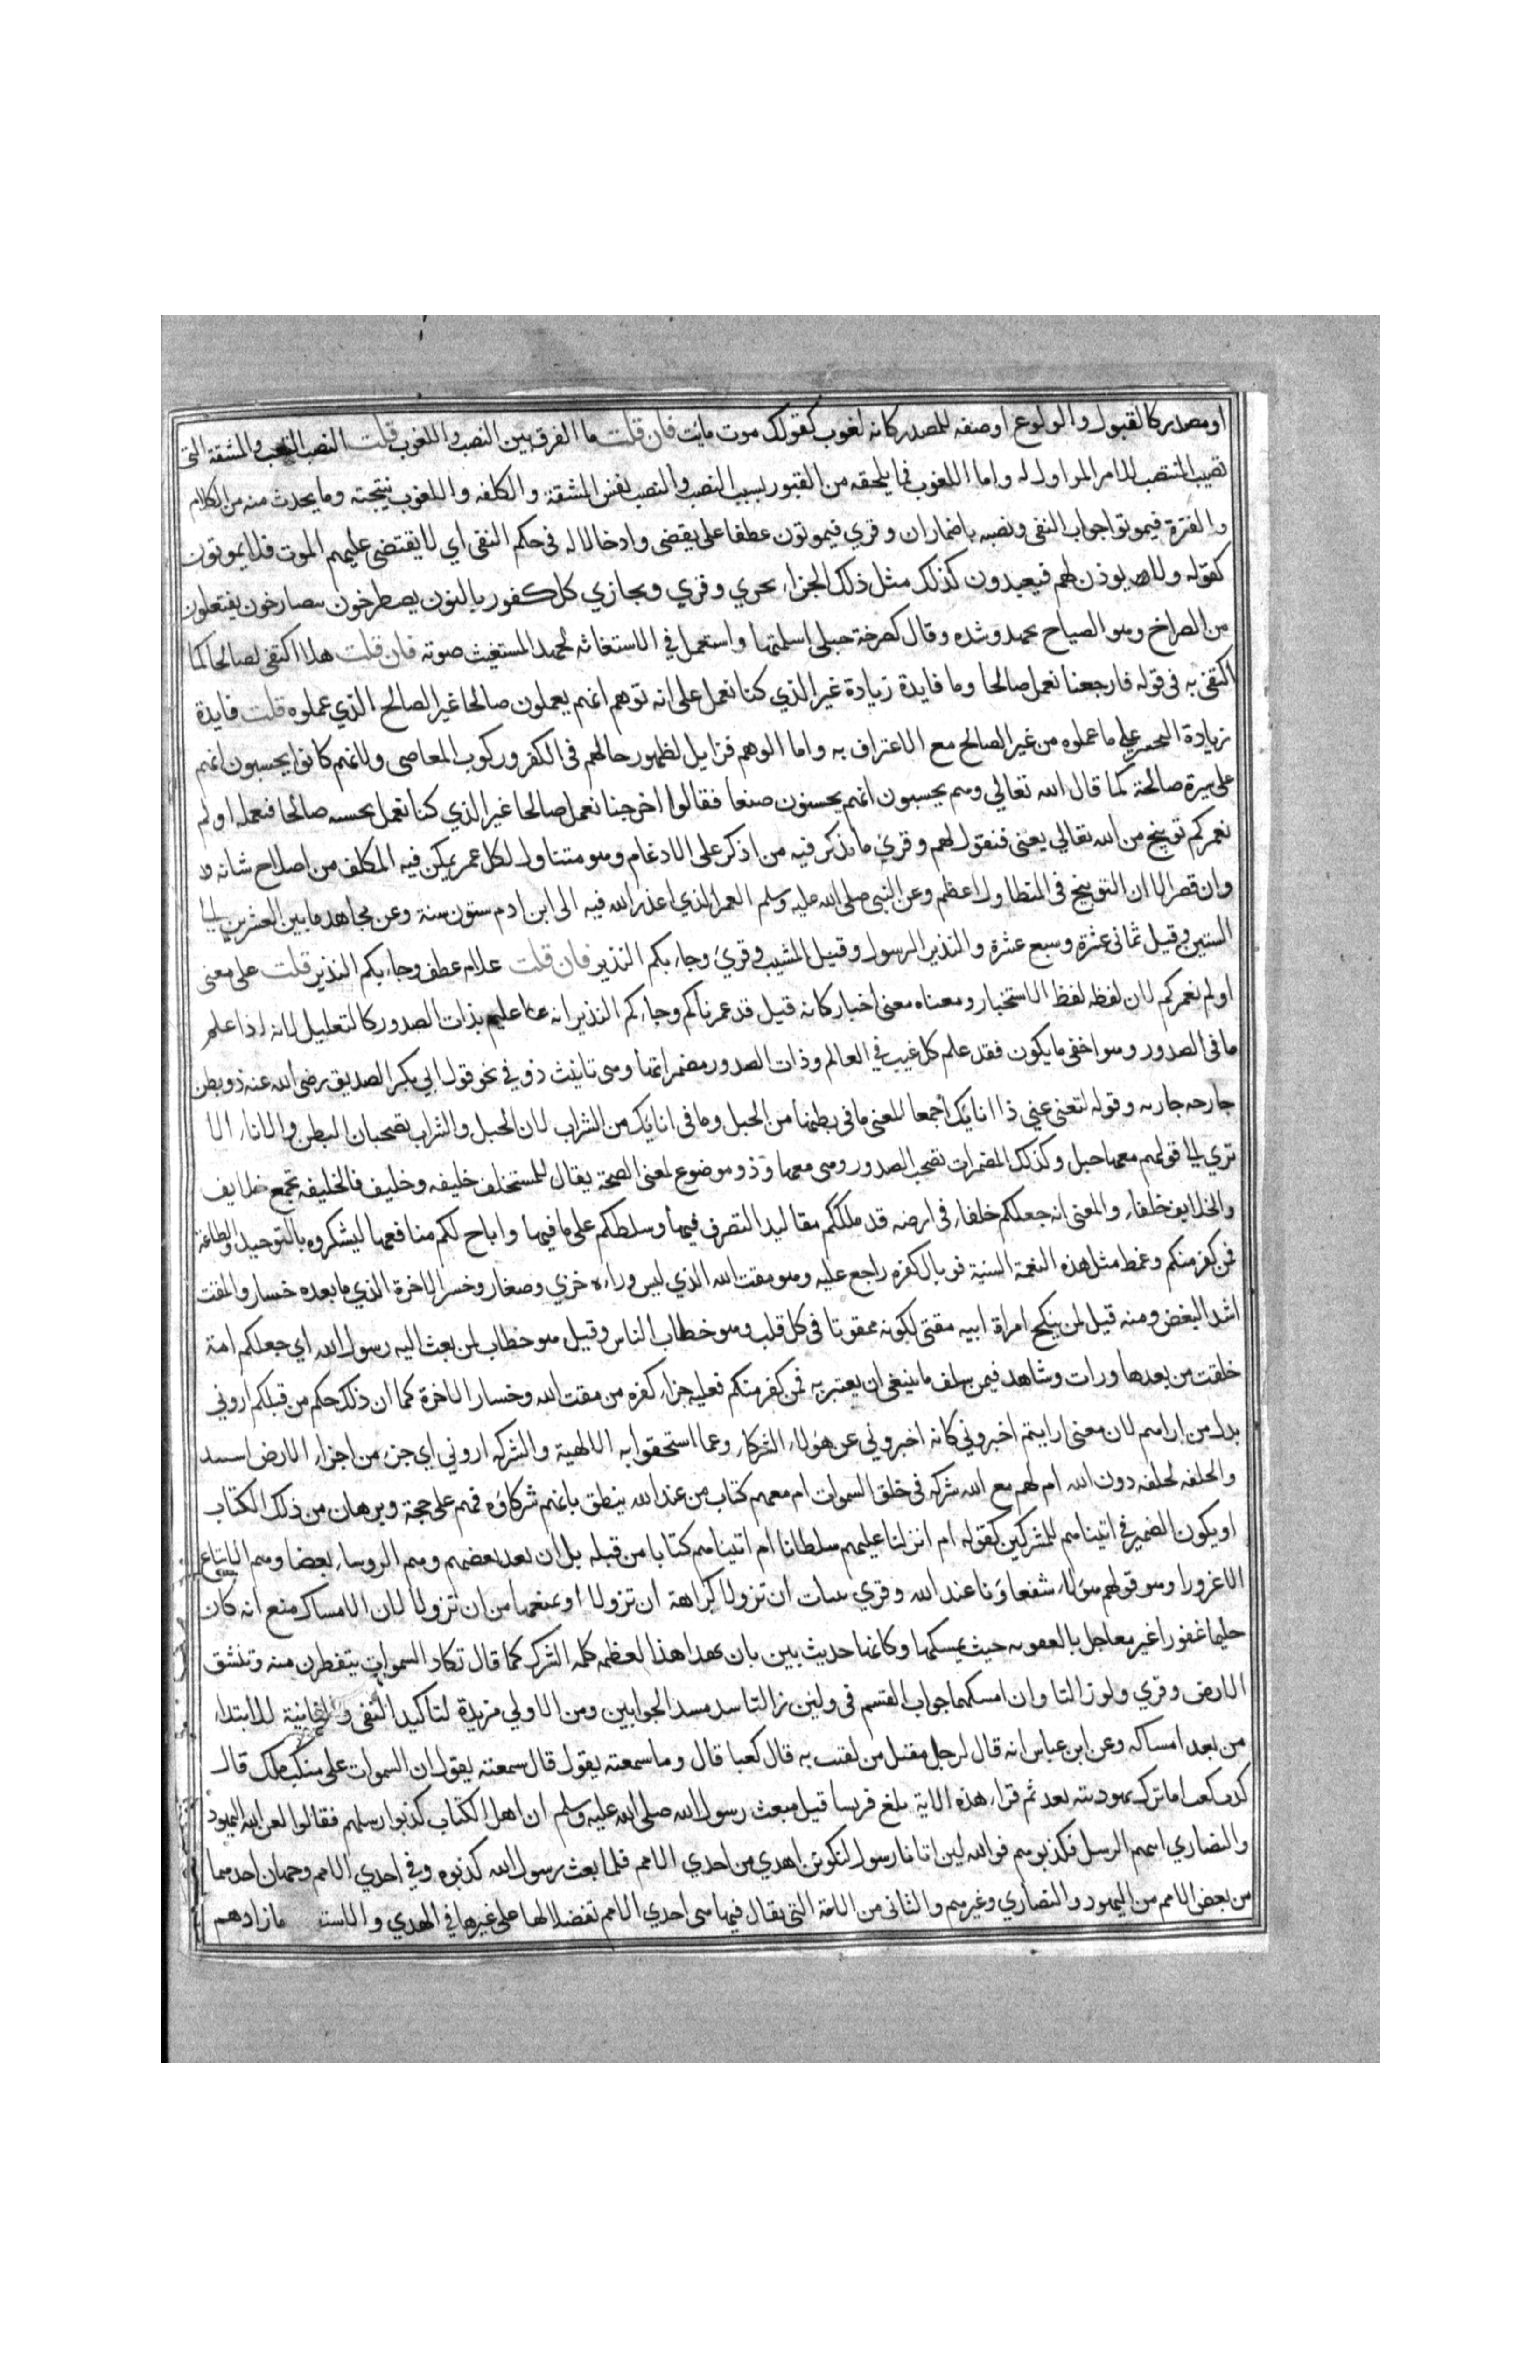 او مصدر كالقبول والولوع او صفه للمصدر كانه لغوب كقولك موت مائت فان قلت ما الفرق بين النصب واللغوب قلت النصب التعب والمشقة التى
تصيب المنتصب للامر المزاول له واما اللغوب فما يلحقه من الفتور بسبب النصب والنصب نفس المشقة والكلفه واللغوب نتيجته وما يحدث منه من الكلال
والفترة فيموتوا جواب النفى ونصبه باضمار ان وقري فيموتون عطفا على يقضى وادخالا له فى حكم النفى اي لا يقتضى عليهم الموت فلا يموتون
كقوله ولا يوذن لهم فيعيدون كذلك مثل ذلك الجزاء يحري وقري ويجازي كل كفور بالنون يصطرخون يتصارخون يفتعلون
من الصراخ وهو الصياح بجهد وشده وقال كصرخة حبلى اسلمتها واستعمل في الاستغاثه لجهد المستغيث صوته فان قلت هلا اكتفى لصالحا كما
اكتفى به فى قوله فارجعنا نعمل صالحا وما فايدة زيادة غير الذي كنا نعمل على انه توهم انهم يعملون صالحا غير الصالح الذي عملوه قلت فايدة
زيادة التحسر على ما عملوه من غير الصالح مع الاعتراف به واما الوهم فزايل لظهور حالهم فى الكفر وركوب المعاصى ولانهم كانوا يحسبون انهم
على سيرة صالحة كما قال الله تعالي وهم يحسبون انهم يحسنون صنعا فقالوا اخرجنا نعمل صالحا غير الذي كنا نعمل بحسبه صالحا فنعمله اولم
نعمركم توبيخ من الله تعالي يعنى فنقول لهم وقرئ ما يذكر فيه من اذكر على الادغام وهو متناول لكل عمر يمكن فيه المكلف من اصلاح شانه
وان قصر الا ان التوبيخ فى المتطاول اعظم وعن النبى صلى الله عليه وسلم العمر الذي اعذر الله فيه الى ابن ادم ستون سنة وعن مجاهد ما بين العشرين الى
الستين وقيل ثمانى عشرة وسبع عشرة والنذير الرسول وقيل المشيب وقرئ وجاءكم النذير فان قلت علام عطف وجاءكم النذير قلت على معنى
اولم نعمركم لان لفظه لفظ الاستخبار ومعناه معنى اخبار كانه قيل قد عمرناكم وجاءكم النذير انه عليم بذات الصدور كالتعليل لانه اذا علم
ما فى الصدور وهو اخفى ما يكون فقد علم كل غيب في العالم وذات الصدور مضمراتها وهى تانيث ذو في نحو قول ابي بكر الصديق رضى الله عنه ذو بطن
خارجه جاريه وقوله لتغنى عني ذا انائك اجمعا المعنى ما فى بطنها من الحبل وما فى انائك من الشراب لان الحبل والشراب يصحبان البطن والاناء الا
تري الى قولهم معها حبل وكذلك المضمرات تصحب الصدور وهى معها وذو موضوع لمعنى الصحبة يقال للمستخلف خليفه وخليف فالخليفه تجمع خلايف
والخلايف خلفاء والمعنى انه جعلكم خلفاء فى ارضه قد ملككم مقاليد التصرف فيها وسلطكم على ما فيها واباح لكم منافعها ليشكروه بالتوحيد والطاعة
فمن كفر منكم وغمط مثل هذه النعمة السنية فوبال كفره راجع عليه وهو مقت الله الذي ليس وراءه خزي وصغار وخسر الاخرة الذي ما بعده خسار والمقت
اشد البغض ومنه قيل لمن ينكح امراة ابيه مقتى لكونه ممقوتا فى كل قلب وهو خطاب الناس وقيل هو خطاب لمن بعث اليه رسول الله اي جعلكم امة
خلقت من بعدها ورات وشاهد فيمن سلف ما ينبغى ان يعتبر به فمن كفر منكم فعليه جزاء كفره من مقت الله وخسار الاخرة كما ان ذلك حكم من قبلكم اروني
بدل من ارايتم لان معنى ارايتم اخبروني كانه اخبروني عن هؤلاء الشركاء وعما استحقوا به الالهية والشركه اروني اي جزء من اجزاء الارض
دون الله ام لهم مع الله شركه فى خلق السموات ام معهم كتاب من عند الله ينطق بانهم شركاؤه فهم على حجة وبرهان من ذلك الكتاب
او يكون الضمير في اتيناهم للمشركين كقوله ام انزلنا عليهم سلطانا ام اتيناهم كتابا من قبله بل ان يعد بعضهم وهم الروساء بعضا وهم الاتباع
الا غرورا وهو قولهم هؤلاء شفعاؤنا عند الله وقري بينات ان تزولا كراهة ان تزولا او يمنعهما من ان تزولا لان الامساك منع انه كان
حليما غفورا غير معاجل بالعقوبه حيث يمسكهما وكانتا حديث بين بان يهدا هذا لعظمه كلمه الشرك كما قال تكاد السموات يتفطرن منه وتنشق
الارض وقري ولو زالتا وان امسكهما جواب القسم فى ولئن زالتا سد مسد الجوابين ومن الاولي مزيدة لتاكيد النفى والثانية للابتداء
من بعد امساكه وعن ابن عباس انه قال لرجل مقبل من لقيت به قال كعبا قال وما سمعته يقول قال سمعته يقول ان السموات على منكب ملك قال
كذب كعب اما ترك يهوديته بعد ثم قراء هذه الاية بلغ قريشا قبل مبعث رسول الله صلى الله عليه وسلم ان اهل الكتاب كذبوا رسلهم فقالوا لعن الله اليهود
والنصاري اتتهم الرسل فكذبوهم فوالله لين اتانا رسول لنكونن اهدي من احدي الامم فلما بعث رسول الله كذبوه وفي احدي الامم وجهان احدهما
من بعض الامم من اليهود والنصاري وغيرهم والثانى من الامة التى يقال فيها هى احدي الامم تفضلا لها على غيرها في الهدي والاست ما زادهم